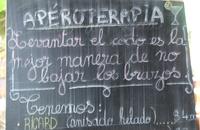 APÉROTERAPIA
Levantar el codo es la
mejor manera de no
bajar los brazos.
Tenemos:
- RICARD (anisado helado)..... 3